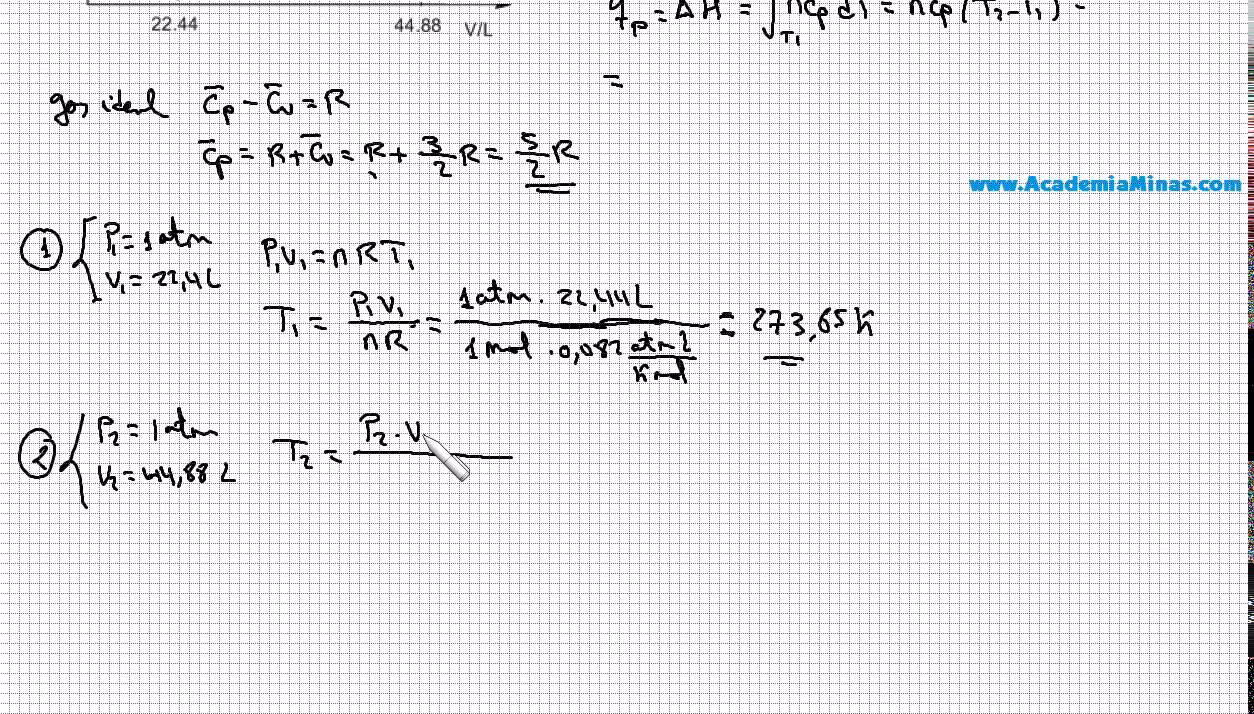 22.44 44.88 V/L
q_p = ΔH = ∫_{T₁} n c̄p dT = n c̄p (T₂ - T₁) =
=
gas ideal C̄p - C̄v = R
C̄p = R + C̄v = R + 3/2 R = 5/2 R
www.AcademiaMinas.com
① { P₁ = 1 atm
V₁ = 22,4 L
P₁V₁ = n R T₁
T₁ = P₁V₁ / nR = 1 atm · 22,44 L / 1 mol · 0,082 atm l / K mol = 273,65 K
② { P₂ = 1 atm
V₂ = 44,88 L
T₂ = P₂ · V